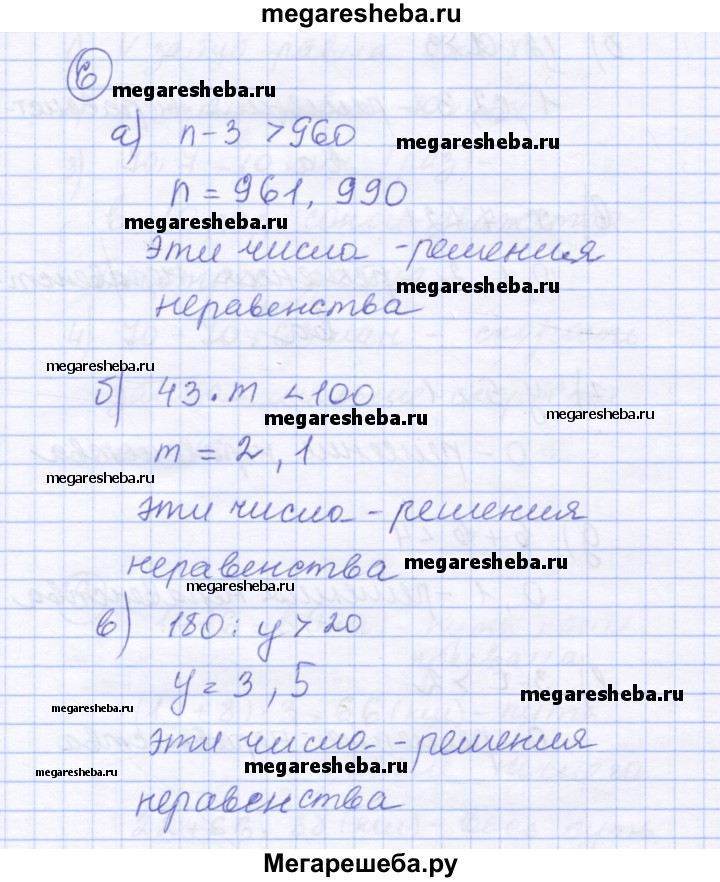 megaresheba.ru
6
megaresheba.ru
а) n - 3 > 960
megaresheba.ru
n = 961, 990
megaresheba.ru
эти числа - решения
megaresheba.ru
неравенства
megaresheba.ru
б) 43 · m < 100
megaresheba.ru
megaresheba.ru
m = 2, 1
megaresheba.ru
эти числа - решения
неравенства
megaresheba.ru
megaresheba.ru
в) 180 : y > 20
y = 3, 5
megaresheba.ru
megaresheba.ru
эти числа - решения
megaresheba.ru
megaresheba.ru
неравенства
Мегарешеба.ру